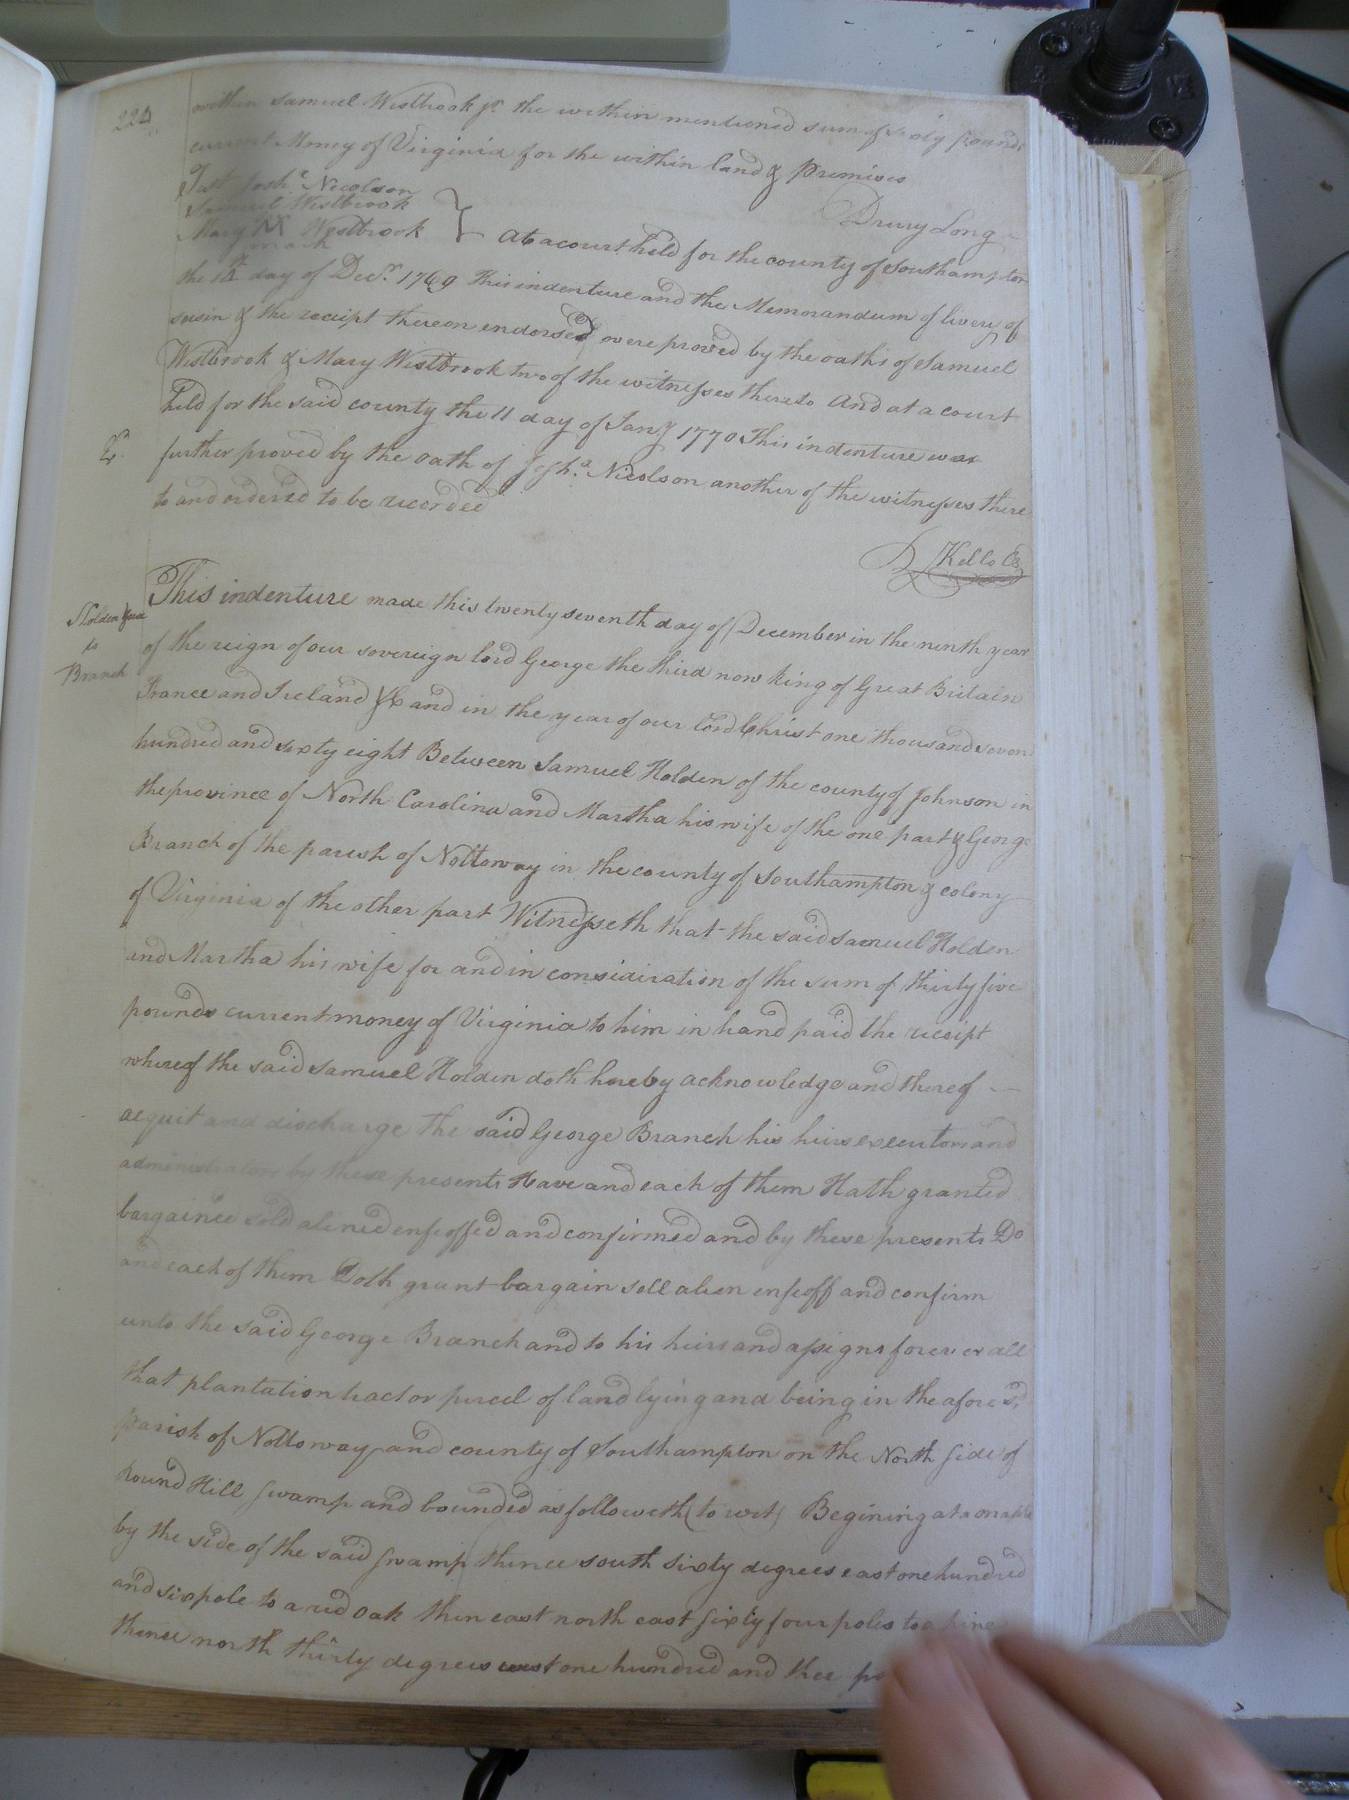 224
within Samuel Westbrook jr. the within mentioned sum of sixty pounds
current Money of Virginia for the within land & premises
Test Josha. Nicolson
Samuel Westbrook
Mary M Westbrook
mark
Drury Long
At a court held for the county of Southampton
the 14 day of Decr. 1769 This indenture and the Memorandum of livery of
seisin & the receipt thereon endorsed were proved by the oaths of Samuel
Westbrook & Mary Westbrook two of the witnesses thereto And at a court
held for the said county the 11 day of Jany 1770 This indenture was
further proved by the oath of Josha. Nicolson another of the witnesses there
to and ordered to be recorded
Kello
This indenture made this twenty seventh day of December in the ninth year
Holden
to
Branch
of the reign of our sovereign lord George the third now King of Great Britain
France and Ireland &c and in the year of our lord Christ one thousand seven
hundred and sixty eight Between Samuel Holden of the county of Johnson in
the province of North Carolina and Martha his wife of the one part & George
Branch of the parish of Nottoway in the county of Southampton & colony
of Virginia of the other part Witnesseth that the said Samuel Holden
and Martha his wife for and in consideration of the sum of thirty five
pounds current money of Virginia to him in hand paid the receipt
whereof the said Samuel Holden doth hereby acknowledge and thereof
acquit and discharge the said George Branch his heirs executors and
administrators by these presents Have and each of them Hath granted
bargained sold aliened enfeoffed and confirmed and by these presents Do
and each of them Doth grant bargain sell alien enfeoff and confirm
unto the said George Branch and to his heirs and assigns forever all
that plantation tract or parcel of land lying and being in the afores'd
parish of Nottoway and county of Southampton on the North side of
Round Hill swamp and bounded as followeth (to wit) Begining at a
by the side of the said swamp thence south sixty degrees east one hundred
and six pole to a red oak then east north east sixty four poles to a pine
thence north thirty degrees west one hundred and thee